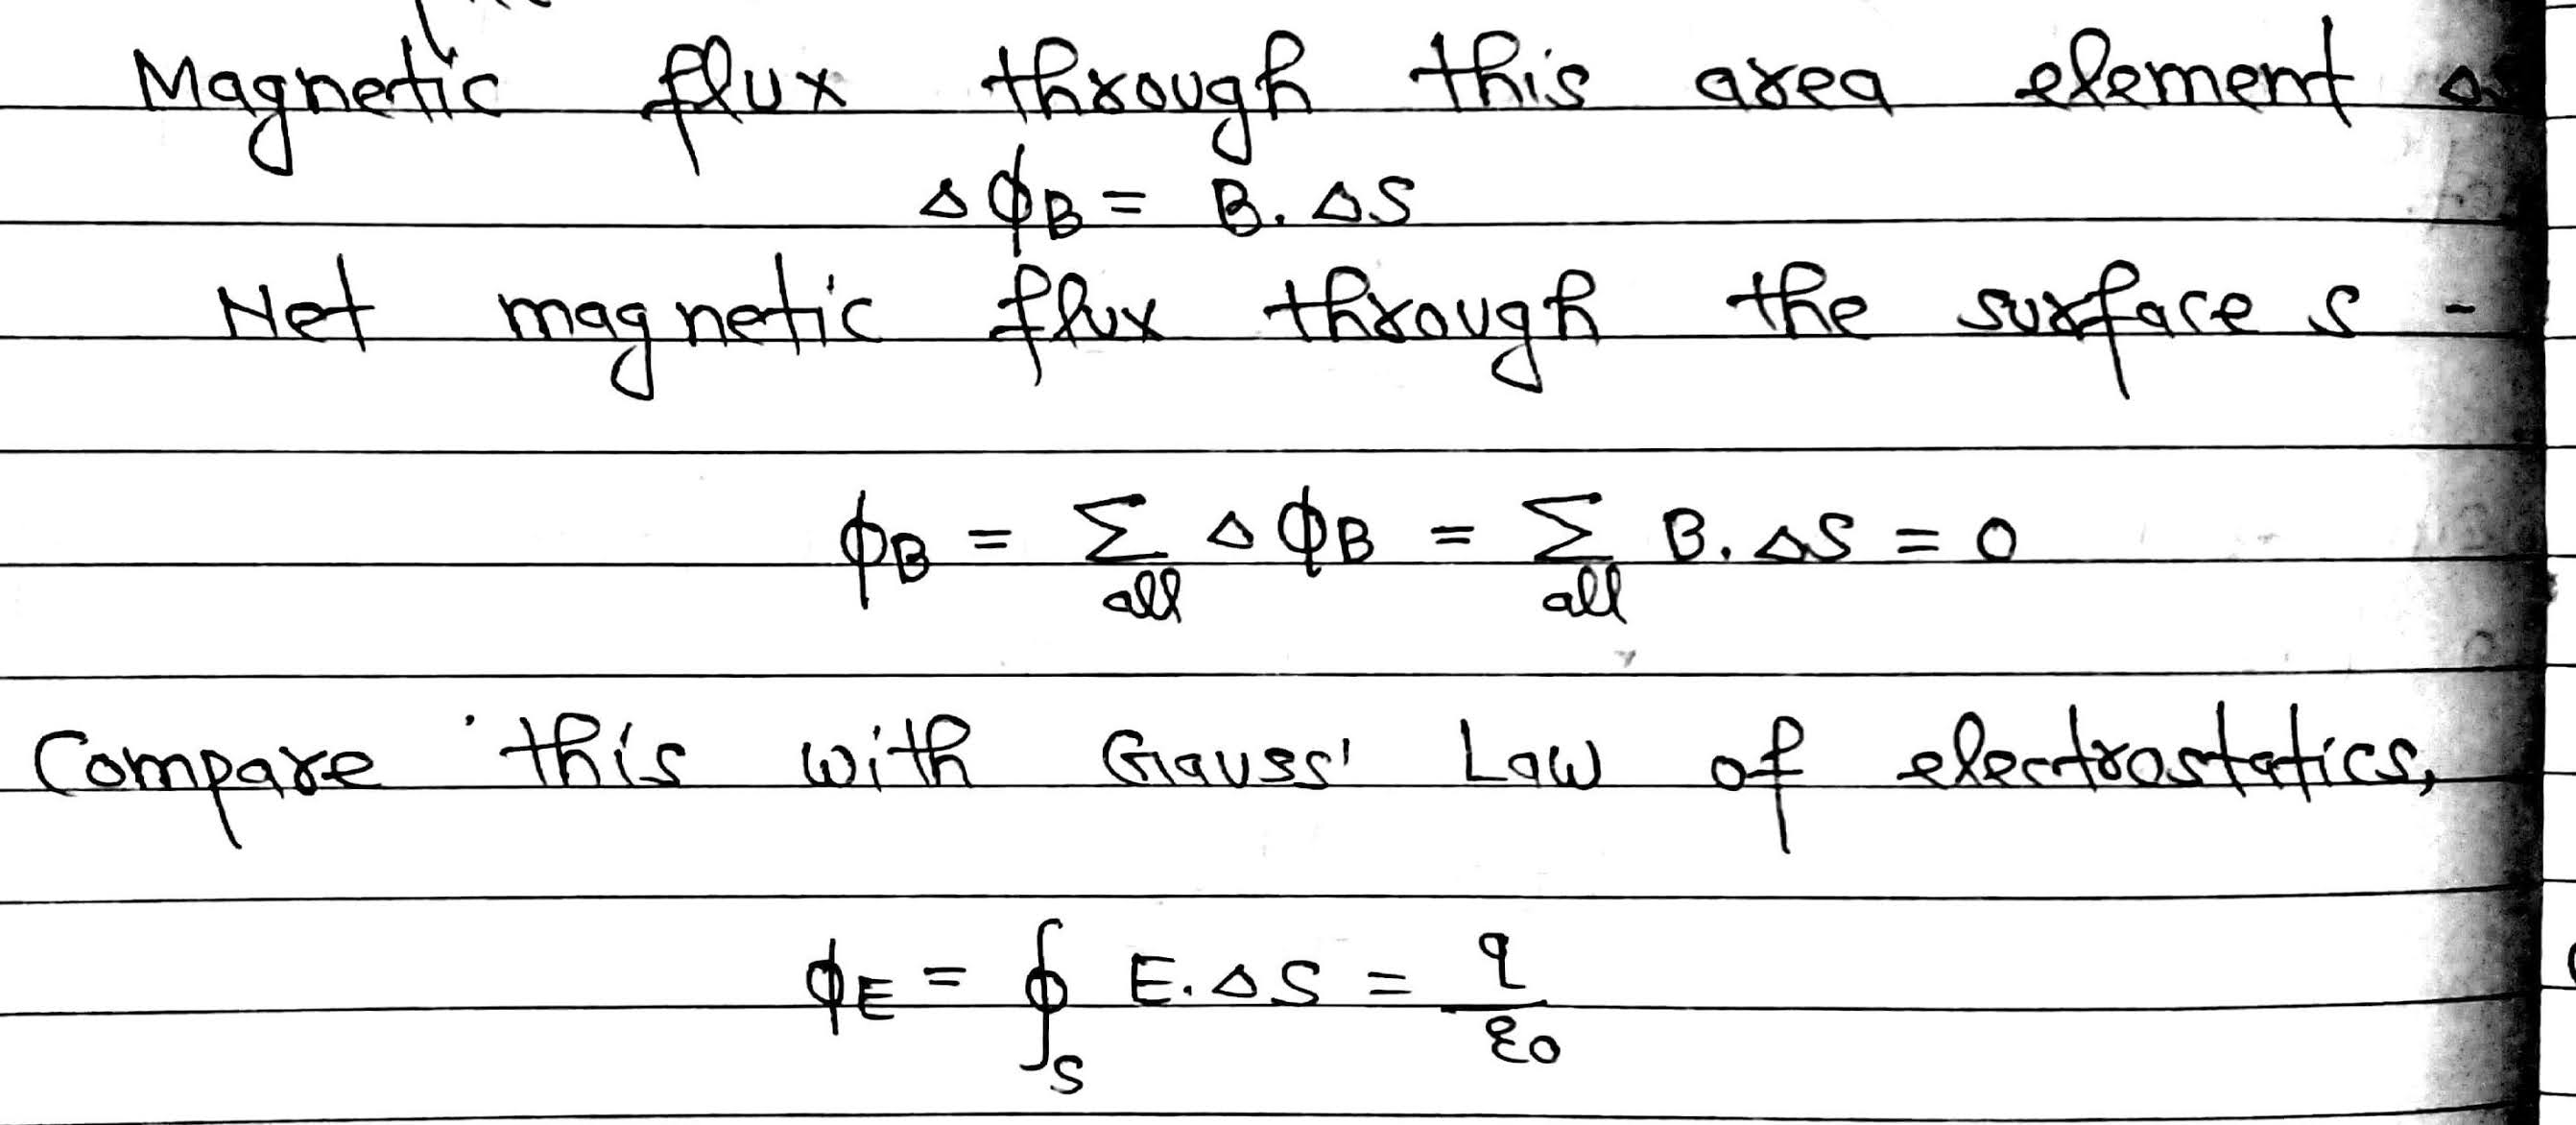 Magnetic flux through this area element
Δ ϕB = B. ΔS
Net magnetic flux through the surface s -
ϕB = Σ Δ ϕB = Σ B. ΔS = 0
all all
Compare this with Gauss' Law of electrostatics,
ϕE = ∮S E. ΔS = q/ε0